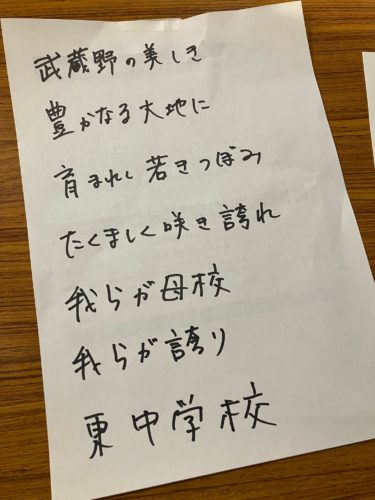 武蔵野の美しき
豊かなる大地に
育まれし若きつぼみ
たくましく咲き誇れ
我らが母校
我らが誇り
東中学校